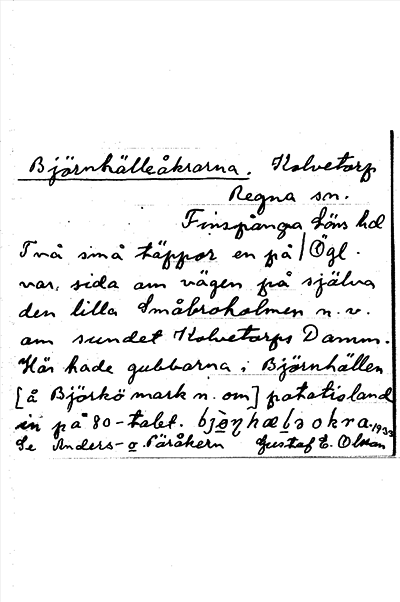 Björnhälleåkrarna. Kolvetorp
Regna sn.
Finspånga Läns hd
Två små täppor en på / Ögl.
var sida om vägen på själva
den lilla Småbroholmen n. v.
om sundet Kolvetorps Damm.
Här hade gubbarna i Björnhällen
[å Björkö mark n. om] potatisland
in på 80-talet. bjò̱ɳhæḻə okra. 1933
Se Anders- o. Päråkern Gustaf E. Olsson